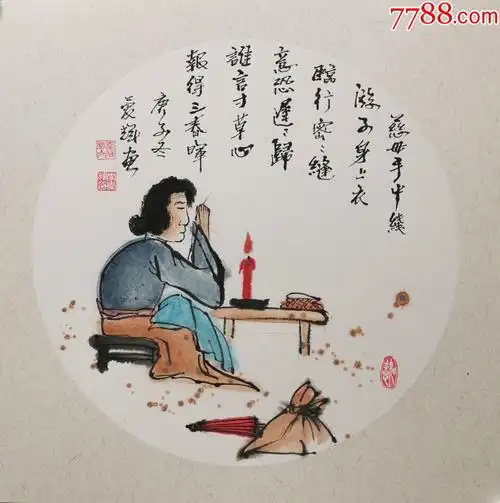 7788.com
慈母手中綫
游子身上衣
臨行密〻縫
意恐遲〻歸
誰言寸草心
報得三春暉
庚子冬